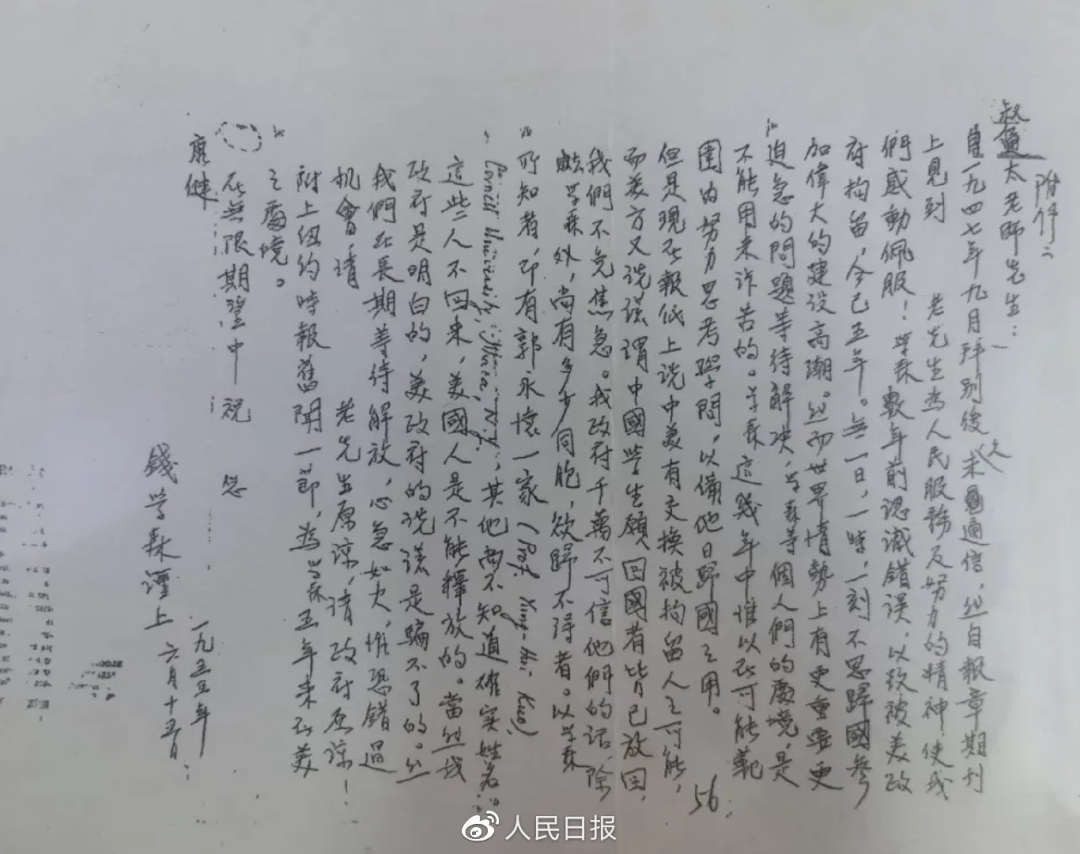 附件二
叔通太老師先生：
自一九四七年九月拜別後久未通信，然自報章期刊
上見到 老先生為人民服務及努力的精神使我
們感動佩服！學森數年前認識錯誤，以致被美政
府拘留，今已五年。無一日，一時，一刻不思歸國參
加偉大的建設高潮。然而世界情勢上有更重要更
迫急的問題等待解決，學森等個人們的處境，是
不能用來訴苦的。學森這幾年中惟以在可能範
圍內努力思考學問，以備他日歸國之用。
56
但是現在報紙上說中美有交換被拘留人之可能，
而美方又說謊謂中國學生願回國者皆已放回，
我們不免焦急。我政府千萬不可信他們的話，除
學森外，尚有多少同胞，欲歸不得者。以學森
所知者，即有郭永懷一家（Prof. Yung-Huai Kuo,
Cornell University, Ithaca, N.Y.），其他尚不知道確實姓名。
這些人不回來，美國人是不能釋放的。當然我
政府是明白的，美政府的說謊是騙不了的。然
我們在長期等待解放，心急如火，惟恐錯過
機會，請 老先生原諒，請政府原諒！
附上紐約時報舊聞一節，為學森五年來在美
之處境。
在無限期望中祝 您
康健
一九五五年
錢學森謹上 六月十五日
人民日报